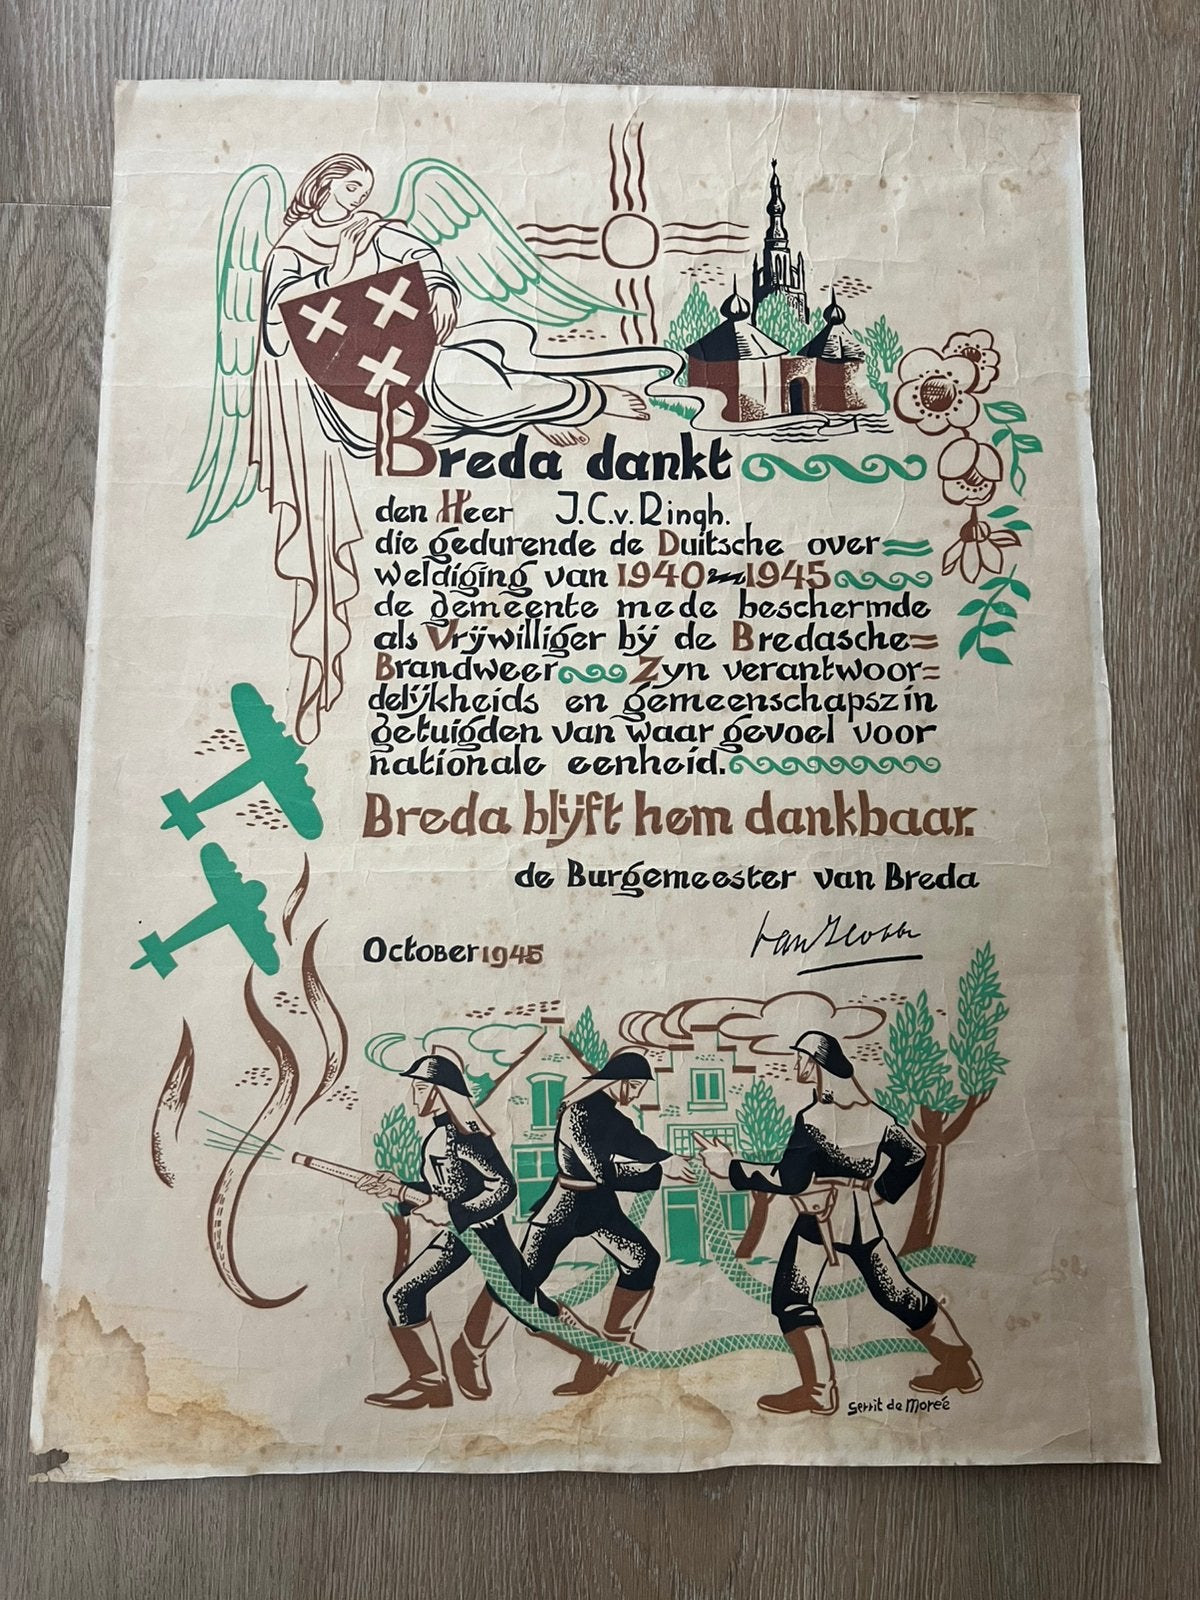 Breda dankt
den Heer J.C.v.Ringh.
die gedurende de Duitsche over=
weldiging van 1940-1945
de gemeente mede beschermde
als Vrijwilliger bij de Bredasche=
Brandweer Zyn verantwoor=
delijkheids en gemeenschapszin
getuigden van waar gevoel voor
nationale eenheid.
Breda blijft hem dankbaar.
de Burgemeester van Breda
October 1945
Gerrit de Moreé